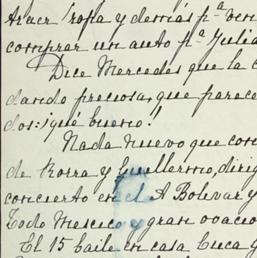 hacer ropa y demás p.ª ven
comprar un auto p.ª Julia
Dice Mercedes que la c
dando preciosa, que parece
dos: ¡qué bueno!
Nada nuevo que con
de Borra y Guillermo, dirig
concierto en el A Bolivar y
Todo Mexico y gran ovacio
El 15 baile en casa Cuca y